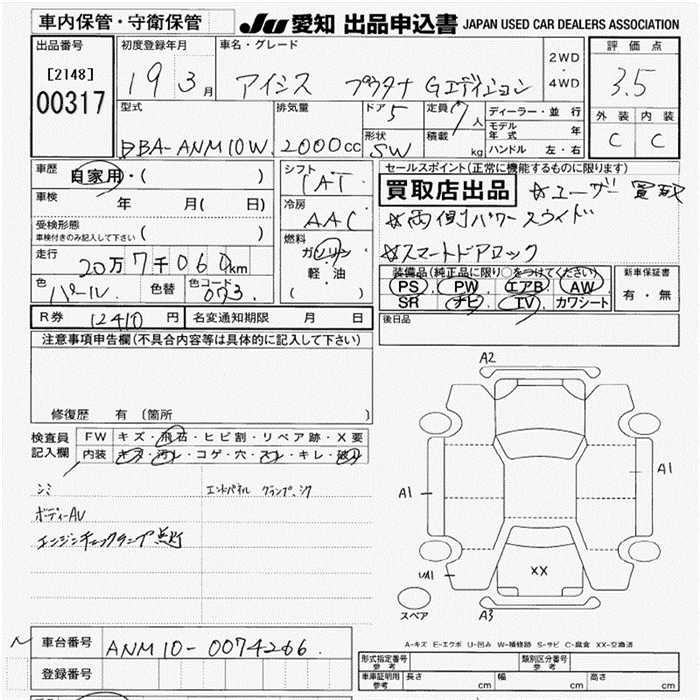 車内保管・守衛保管
JU 愛知 出品申込書 JAPAN USED CAR DEALERS ASSOCIATION
出品番号
[2148]
00317
初度登録年月
19 3月
車名・グレード
アイシス プラタナ Gエディション
2WD・4WD
評価点
3.5
外装 内装
C C
型式
DBA-ANM10W
排気量
2000cc
ドア 5
形状 SW
定員 7人
積載 kg
ディーラー・並行
モデル年式 年
ハンドル 左・右
車歴 自家用・( )
車検 年 月( 日)
受検形態
車検付きのみ記入して下さい ( )
走行
20万7千060km
色 パール
色替
色コード 073
シフト
IAT
冷房
AAC
燃料
ガソリン
軽・油
( )
セールスポイント(正常に機能するものに限ります)
買取店出品 ☆ユーザー買取
☆両側パワースライド
☆スマートドアロック
装備品(純正品に限り○をつけてください)
PS PW エアB AW
SR ナビ TV カワシート
新車保証書
有・無
後日品
R券 12410円 名変通知期限 月 日
注意事項申告欄(不具合内容等は具体的に記入して下さい)
修復歴 有 (箇所 )
検査員記入欄
FW キズ・飛石・ヒビ割・リペア跡・X要
内装 キズ・汚レ・コゲ・穴・スレ・キレ・破レ
シミ エンドパネル クランプ、シワ
ボディーAU
エンジンチェックランプ点灯
A2
A1
A1
UA1
XX
A3
スペア
A-キズ E-エクボ U-凹み W-補修跡 S-サビ C-腐食 XX-交換済
車台番号 ANM10-0074266
登録番号
形式指定番号 参考
類別区分番号 参考
車庫証明用 参考 長さ cm 幅 cm 高さ cm